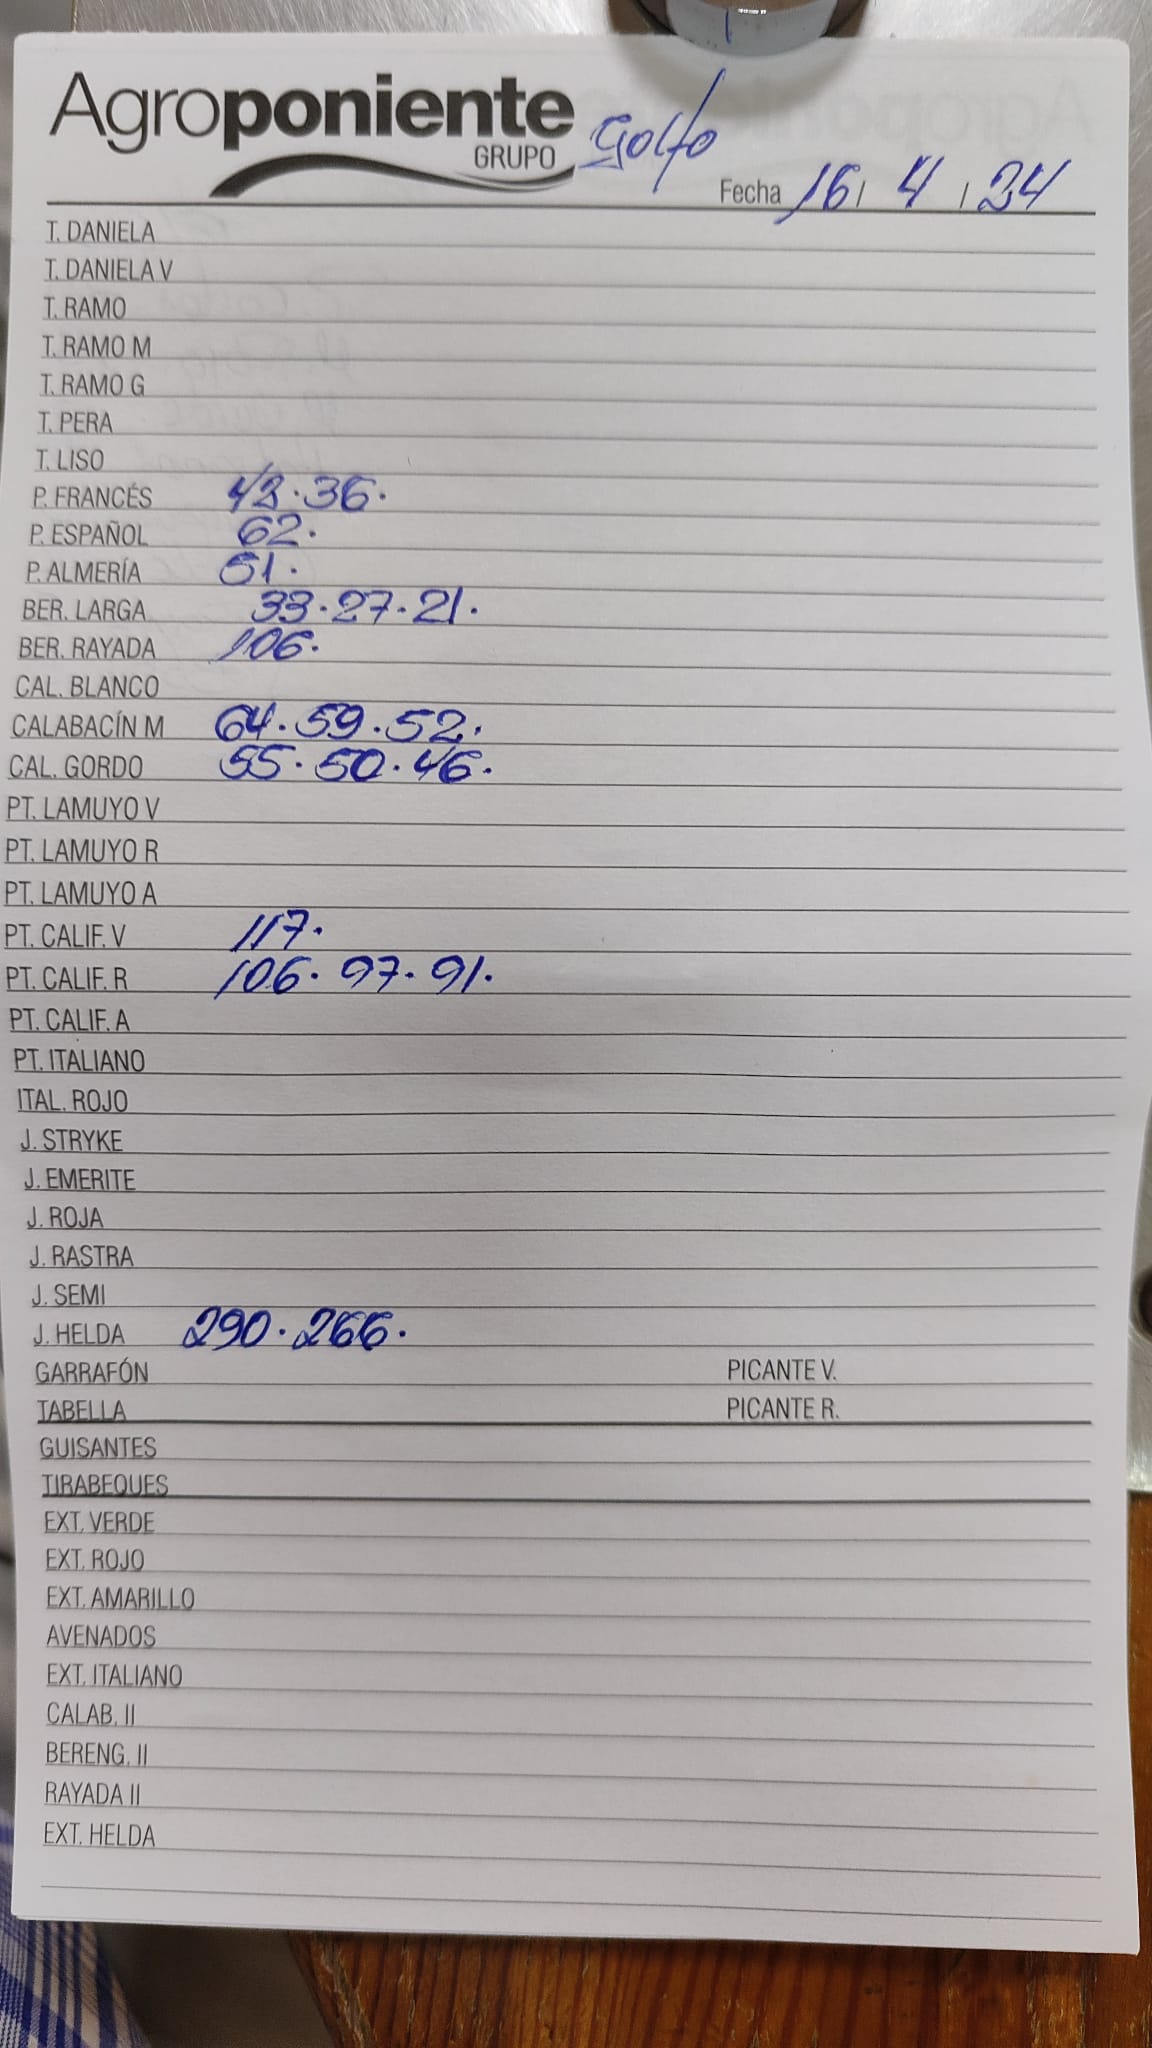 Agroponiente
GRUPO
Golfo
Fecha 16 / 4 / 24
T. DANIELA
T. DANIELA V
T. RAMO
T. RAMO M
T. RAMO G
T. PERA
T. LISO
P. FRANCÉS 43.36.
P. ESPAÑOL 62.
P. ALMERÍA 51.
BER. LARGA 33.27.21.
BER. RAYADA 106.
CAL. BLANCO
CALABACÍN M 64.59.52.
CAL. GORDO 55.50.46.
PT. LAMUYO V
PT. LAMUYO R
PT. LAMUYO A
PT. CALIF. V 117.
PT. CALIF. R 106.97.91.
PT. CALIF. A
PT. ITALIANO
ITAL. ROJO
J. STRYKE
J. EMERITE
J. ROJA
J. RASTRA
J. SEMI
J. HELDA 290.266.
GARRAFÓN PICANTE V.
TABELLA PICANTE R.
GUISANTES
TIRABEQUES
EXT. VERDE
EXT. ROJO
EXT. AMARILLO
AVENADOS
EXT. ITALIANO
CALAB. II
BERENG. II
RAYADA II
EXT. HELDA